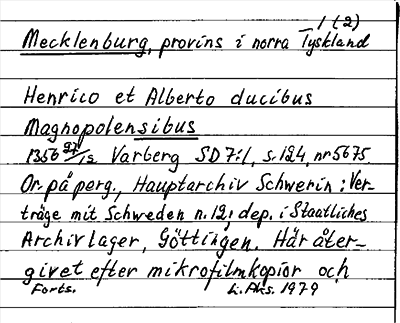 1 (2)
Mecklenburg, provins i norra Tyskland
Henrico et Alberto ducibus
Magnopolensibus
1356 27/12. Varberg SD 7:1, s. 124, nr 5675.
Or. på perg., Hauptarchiv Schwerin: Ver-
träge mit Schweden n. 12; dep. i Staatliches
Archivlager, Göttingen. Här åter-
givet efter mikrofilmkopior och
Forts. L. Aks. 1979